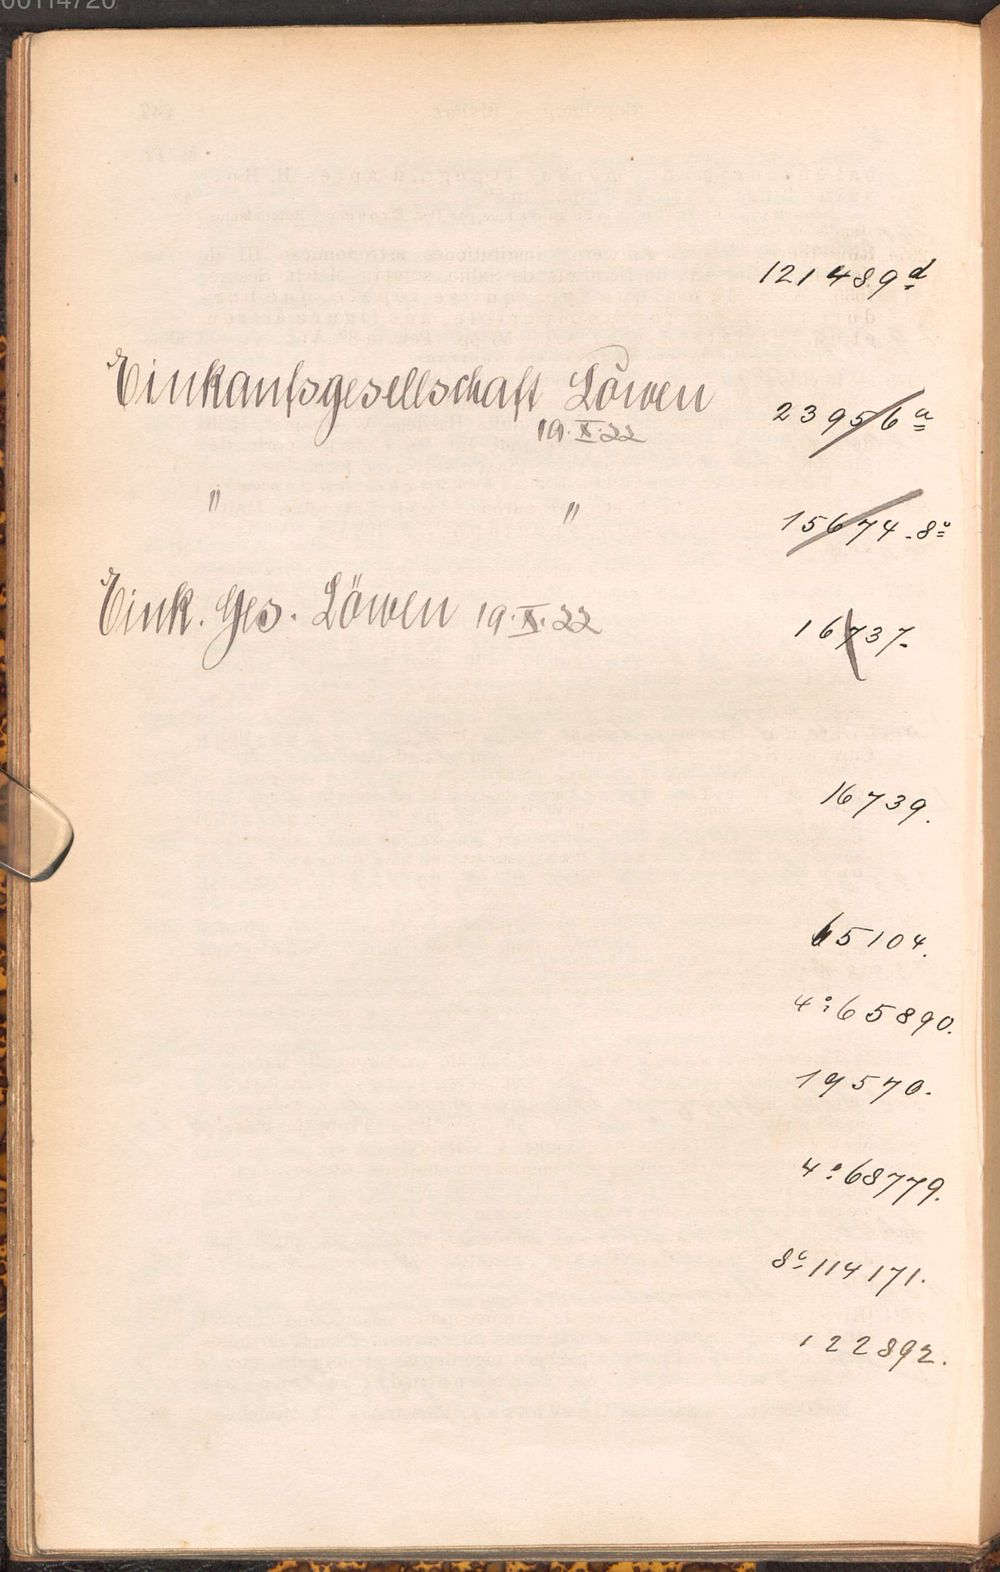 00114720
121489 d
Einkaufsgesellschaft Löwen 23956 a
19.X.22
" " 15674.8°
Eink. Ges. Löwen 19.X.22 16737.
16739.
65104.
4° 65890.
19570.
4° 68779.
8° 114171.
122892.